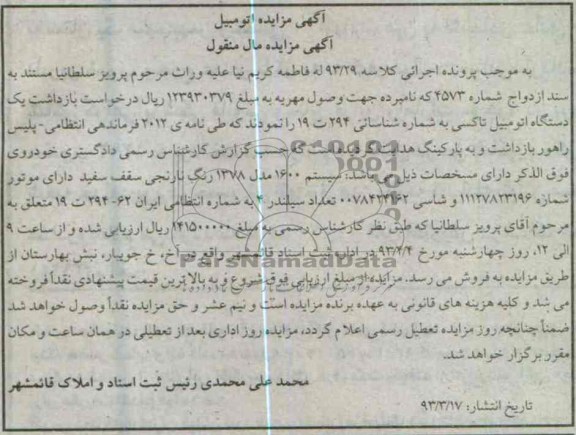 آگهی مزایده اتومبیل
آگهی مزایده مال منقول
به موجب پرونده اجرائی کلاسه ۹۳/۲۹ له فاطمه کریم نیا علیه وراث مرحوم پرویز سلطانیا مستند به
سند ازدواج شماره ۴۵۷۳ که نامبرده جهت وصول مهریه به مبلغ ۱۲۳۹۳۰۳۷۹ ریال درخواست بازداشت یک
دستگاه اتومبیل تاکسی به شماره شناسائی ۲۹۴ ت ۱۹ را نمودند که طی نامه ی ۲۰۱۲ فرماندهی انتظامی - پلیس
راهور بازداشت و به پارکینگ هدایت شده است که حسب گزارش کارشناس رسمی دادگستری خودروی
فوق الذکر دارای مشخصات ذیل می باشد: سیستم ۱۶۰۰ مدل ۱۳۷۸ رنگ نارنجی سقف سفید دارای موتور
شماره ۱۱۱۲۷۸۲۳۱۹۶ و شاسی ۰۰۷۸۴۲۲۱۶۲ تعداد سیلندر ۴ به شماره انتظامی ایران ۶۲- ۲۹۴ ت ۱۹ متعلق به
مرحوم آقای پرویز سلطانیا که طبق نظر کارشناس رسمی به مبلغ ۱۴۱۵۰۰۰۰۰ ریال ارزیابی شده و از ساعت ۹
الی ۱۲، روز چهارشنبه مورخ ۹۳/۴/۴ در اداره ثبت اسناد قائمشهر واقع در خ، خ جویبار، نبش بهارستان از
طریق مزایده به فروش می رسد. مزایده از مبلغ ارزیابی فوق شروع و به بالاترین قیمت پیشنهادی نقداً فروخته
می شد و کلیه هزینه های قانونی به عهده برنده مزایده است و نیم عشر و حق مزایده نقداً وصول خواهد شد
ضمناً چنانچه روز مزایده تعطیل رسمی اعلام گردد، مزایده روز اداری بعد از تعطیلی در همان ساعت و مکان
مقرر برگزار خواهد شد.
محمد علی محمدی رئیس ثبت اسناد و املاک قائمشهر
تاریخ انتشار: ۹۳/۳/۱۷
ParsNamadData